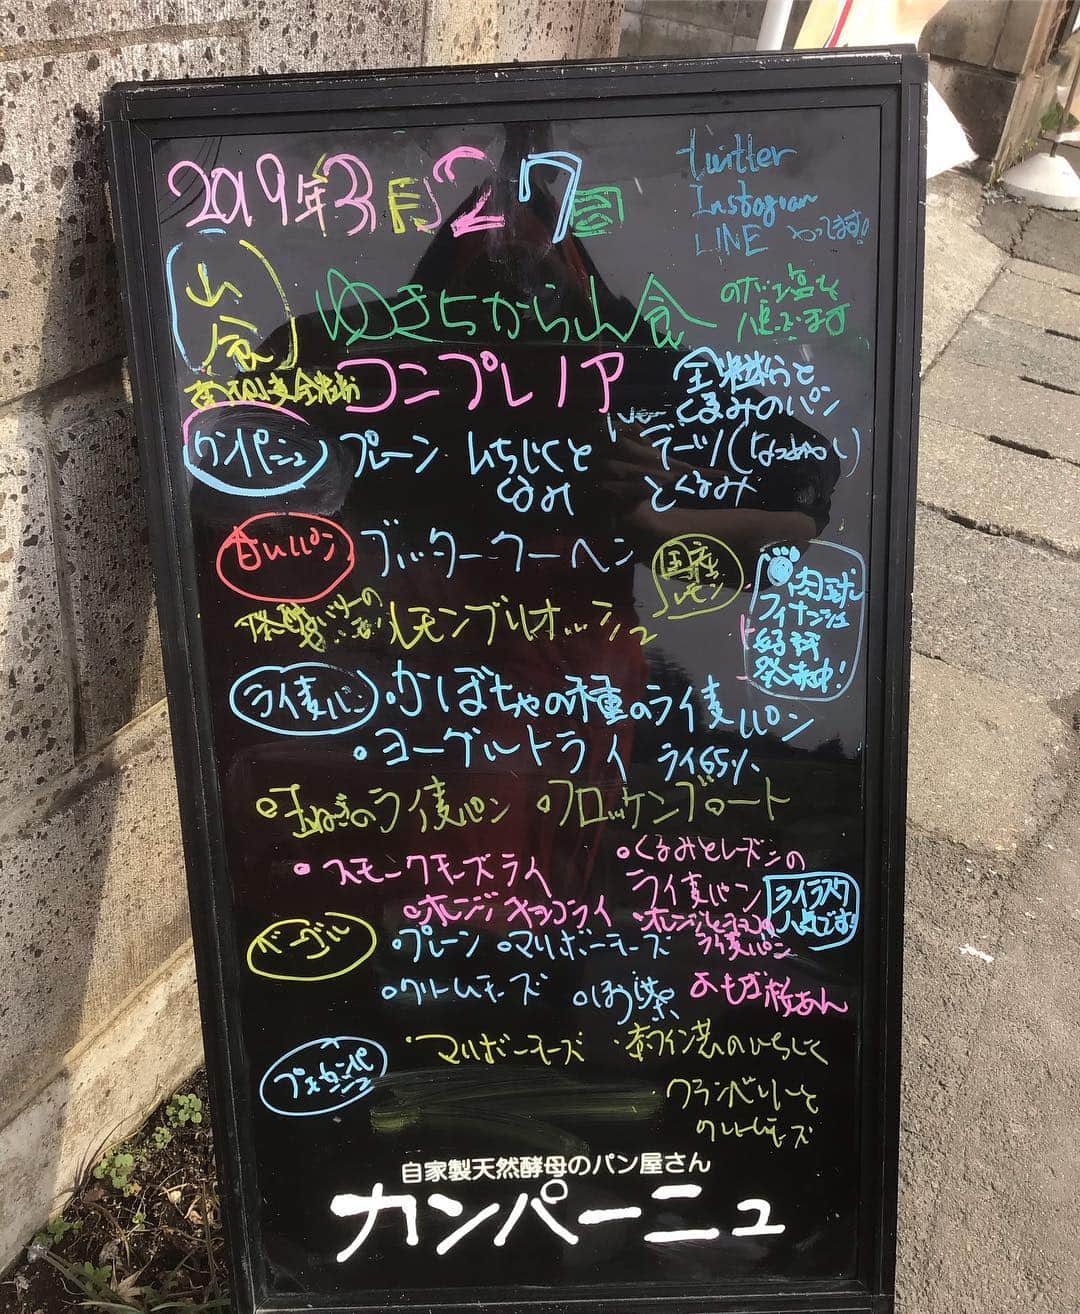 2019年3月27日
twitter
Instagram
LINE やってます!
山食
ゆきちから山食
コンプレノア
全粒粉と
くるみのパン
カンパーニュ
プレーン いちじくと
くるみ
デーツ(なつめやし)
とくるみ
甘いパン
ブッタークーヘン
国産
レモン
レモンブリオッシュ
肉球
フィナンシェ
好評
発売中!
ライ麦パン
・かぼちゃの種のライ麦パン
・ヨーグルトライ ライ65%
・玉ねぎのライ麦パン ・フロッケンブロート
・スモークチーズライ
・くるみとレーズンの
ライ麦パン
・オレンジチョコライ
・オレンジとチョコの
ライ麦パン
ライラスク
人気です!
ベーグル
・プレーン ・マリボーチーズ
・クリームチーズ ・ほうじ茶 よもぎ桜あん
プチカンパーニュ
・マリボーチーズ ・赤ワイン煮のいちじく
クランベリーと
クリームチーズ
自家製天然酵母のパン屋さん
カンパーニュ